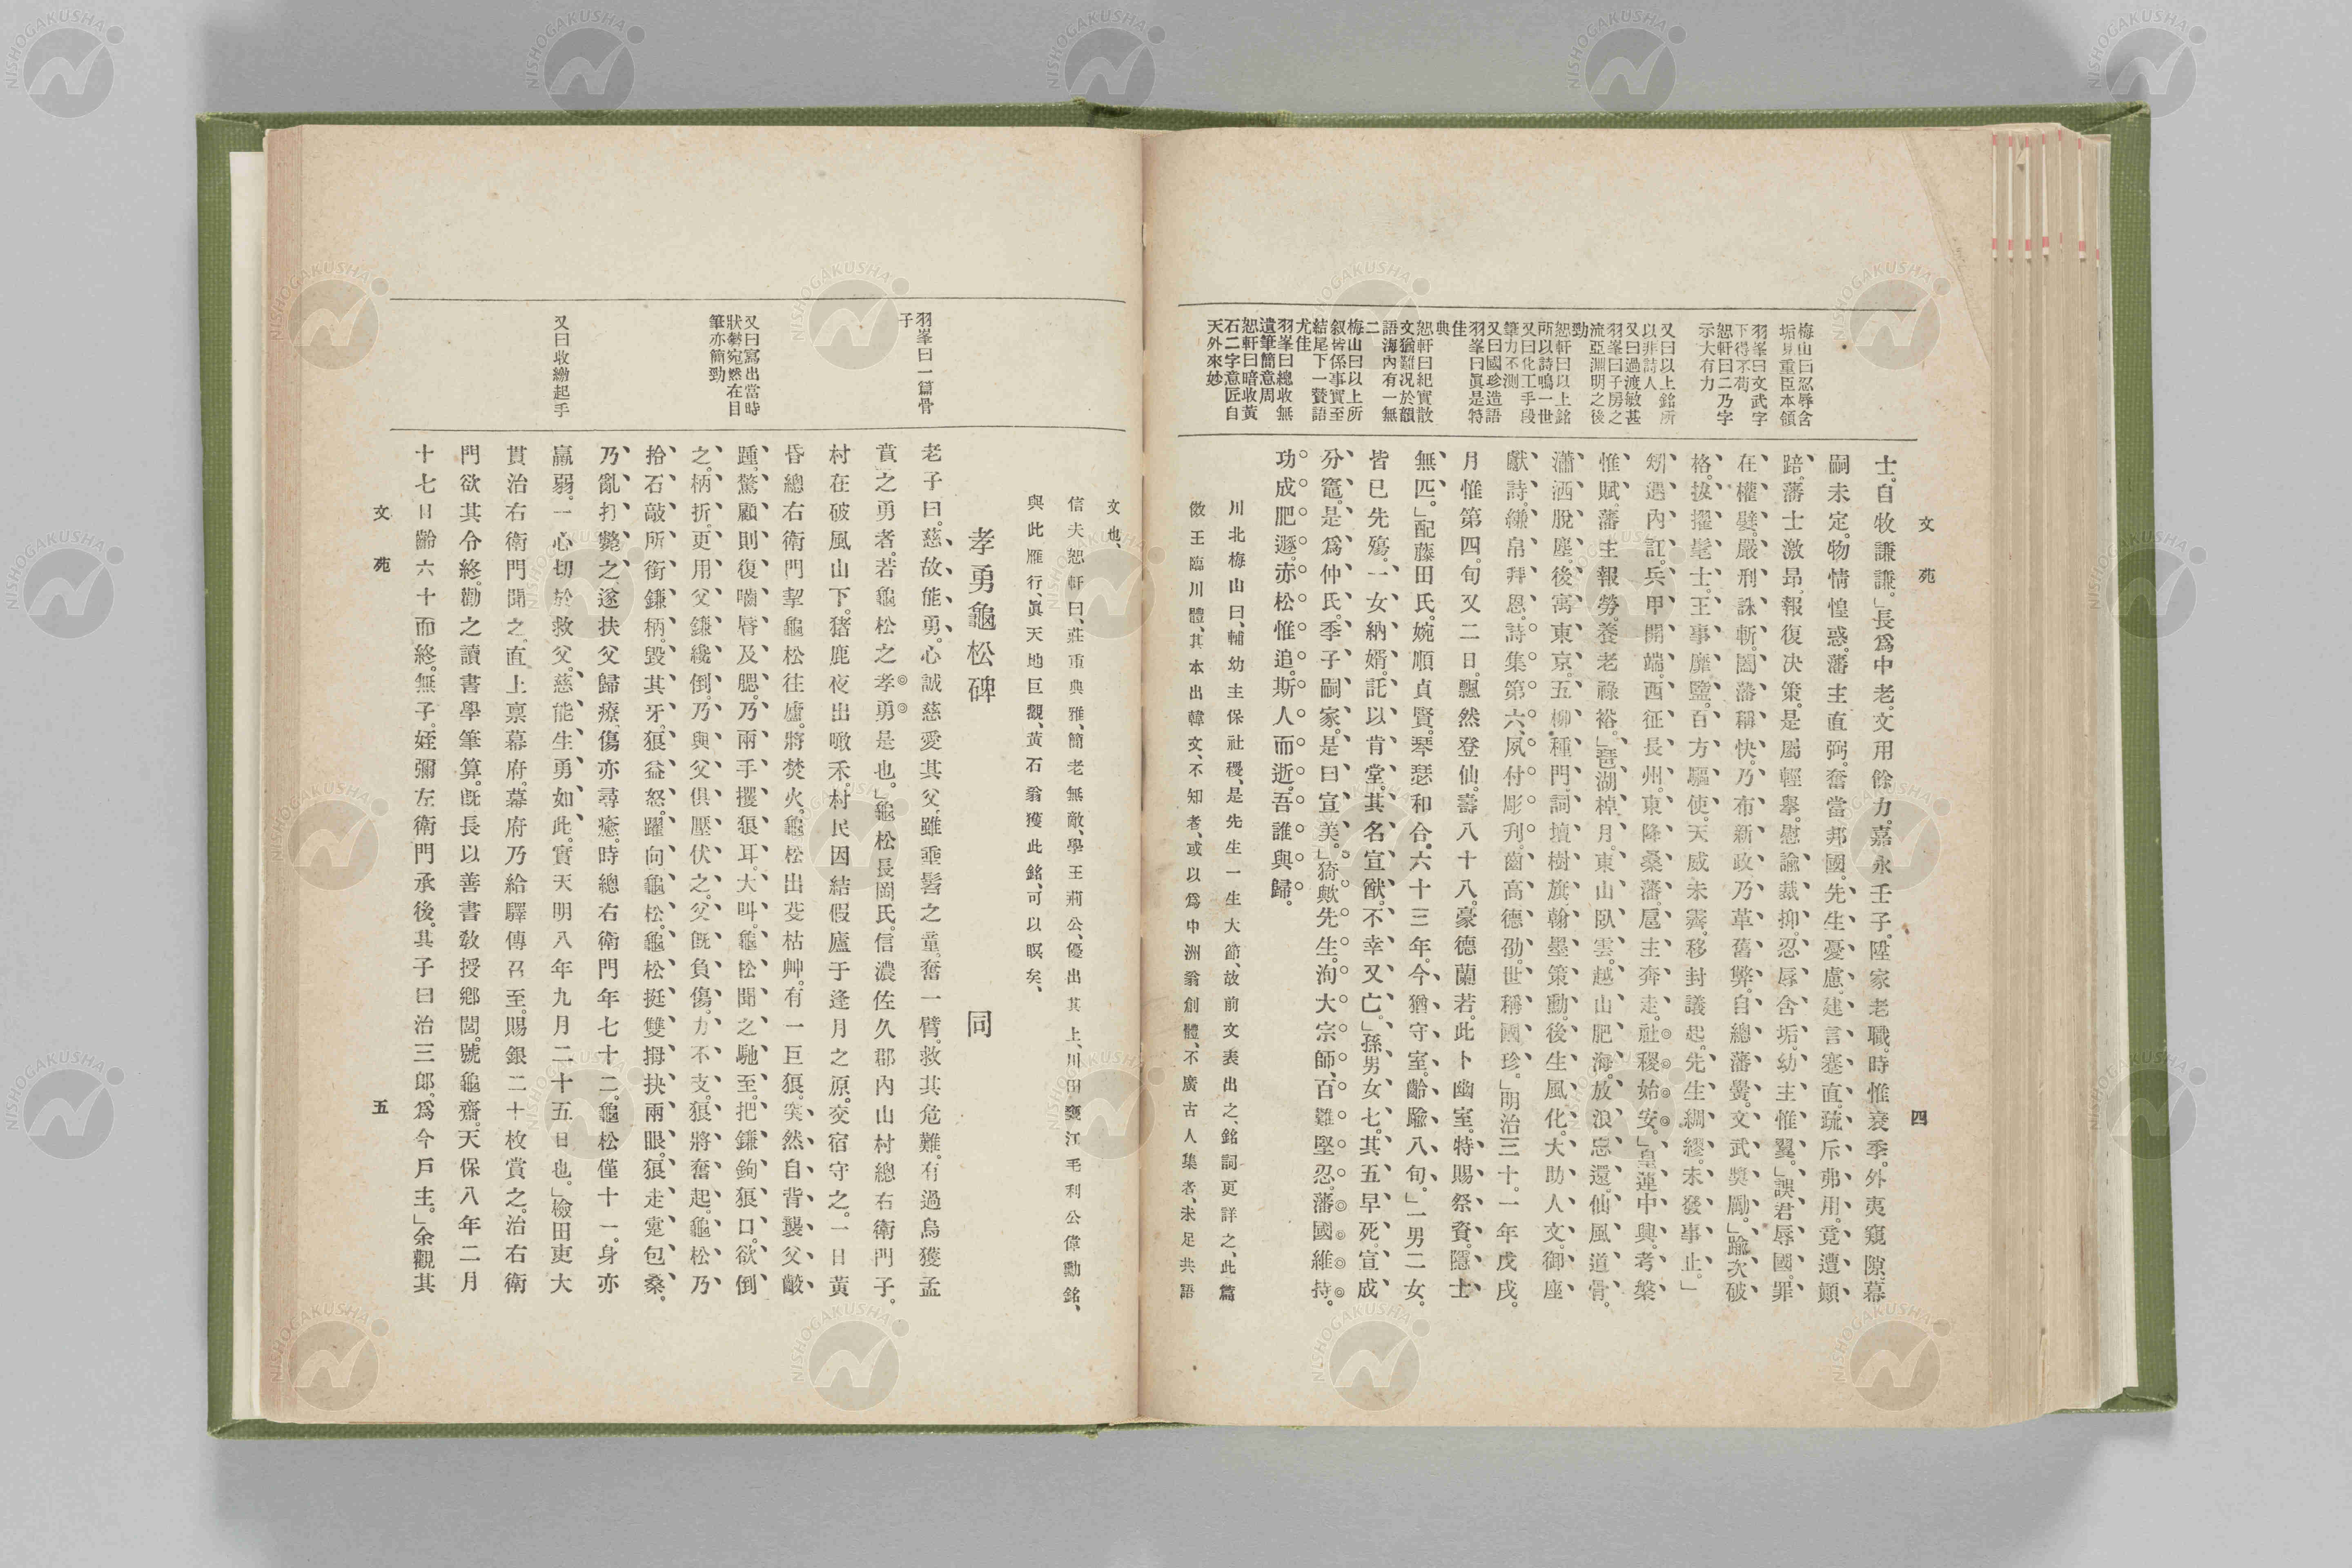 文苑
四
梅山曰忍辱含
垢見重臣本領
羽峯曰文武字
下得不苟
恕軒曰二乃字
示大有力
又曰以上銘所
以非詩人
又曰過渡敏甚
羽峯曰子房之
流亞淵明之後
勁
恕軒曰以上銘
所以詩鳴一世
又曰化工手段
筆力不測
又曰國珍造語
羽峯曰眞是特
佳
典
恕軒曰紀實散
文猶難況於韻
語海內有一無
二
梅山曰以上所
叙皆係事實至
結尾下一贊語
尤佳
羽峯曰總收無
遺筆簡意周
恕軒曰暗收黃
石二字意匠自
天外來妙
士。自牧謙謙。」長爲中老。文用餘力。嘉永壬子。陞家老職。時惟衰季。外夷窺隙。幕
嗣未定。物情惶惑。藩主直弼。奮當邦國。先生憂慮。建言蹇直。疏斥弗用。竟遭顚
踣。藩士激昂。報復决策。是屬輕擧。慰諭裁抑。忍辱含垢。幼主惟翼。」誤君辱國。罪
在權嬖。嚴刑誅斬。闔藩稱快。乃布新政。乃革舊弊。自總藩黌。文武奬勵。」踰次破
格。拔擢髦士。王事靡鹽。百方驅使。天威未霽。移封議起。先生綢繆。未發事止。」
矧遇內訌。兵甲開端。西征長州。東降桑藩。扈主奔走。社稷始安。」皇運中興。考槃
惟賦。藩主報勞。養老祿裕。」琶湖棹月。東山臥雲。越山肥海。放浪忘還。仙風道骨。
瀟洒脫塵。後寓東京。五柳種門。詞壇樹旗。翰墨策勳。後生風化。大助人文。御座
獻詩。縑帛拜恩。詩集第六。夙付彫刋。齒高德劭。世稱國珍。」明治三十。一年戊戌。
月惟第四。旬又二日。飄然登仙。壽八十八。豪德蘭若。此卜幽室。特賜祭資。隱士
無匹。」配藤田氏。婉順貞賢。琴瑟和合。六十三年。今猶守室。齡踰八旬。」一男二女。
皆已先殤。一女納婿。託以肯堂。其名宣猷。不幸又亡。」孫男女七。其五早死。宣成
分竈。是爲仲氏。季子嗣家。是曰宣美。」猗歟先生。洵大宗師。百難堅忍。藩國維持。
功成肥遯。赤松惟追。斯人而逝。吾誰與歸。
川北梅山曰、輔幼主保社稷、是先生一生大節、故前文表出之、銘詞更詳之、此篇
倣王臨川體、其本出韓文、不知者、或以爲中洲翁創體、不廣古人集者、未足共語
文也、
信夫恕軒曰、莊重典雅、簡老無敵、學王荊公、優出其上、川田甕江毛利公偉勳銘、
與此雁行、眞天地巨觀、黃石翁獲此銘、可以瞑矣、
孝勇龜松碑 同
羽峯曰一篇骨
子
又曰寫出當時
狀勢宛然在目
筆亦簡勁
又曰收繳起手
老子曰。慈故能勇。心誠慈愛其父。雖垂髫之童。奮一臂。救其危難。有過烏獲孟
賁之勇者。若龜松之孝勇是也。」龜松長岡氏。信濃佐久郡內山村總右衛門子。
村在破風山下。猪鹿夜出噉禾。村民因結假廬于逢月之原。交宿守之。一日黃
昏總右衛門挈龜松往廬。將焚火。龜松出芟枯艸。有一巨狼。突然自背襲父。齩
踵。驚顧則復嚙唇及腮。乃兩手攫狼耳。大叫。龜松聞之馳至。把鎌鉤狼口。欲倒
之。柄折。更用父鎌纔倒。乃與父俱壓伏之。父既負傷。力不支。狼將奮起。龜松乃
拾石敲所銜鎌柄。毀其牙。狼益怒。躍向龜松。龜松挺雙拇抉兩眼。狼走寔包桑。
乃亂打斃之。遂扶父歸療。傷亦尋癒。時總右衛門年七十二。龜松僅十一。身亦
羸弱。一心切於救父。慈能生勇如此。實天明八年九月二十五日也。」檢田吏大
貫治右衛門聞之。直上禀幕府。幕府乃給驛傳召至。賜銀二十枚賞之。治右衛
門欲其令終。勸之讀書學筆算。既長以善書敎授鄕閭。號龜齋。天保八年二月
十七日齡六十而終。無子。姪彌左衛門承後。其子曰治三郎。爲今戶主。」余觀其
文苑
五